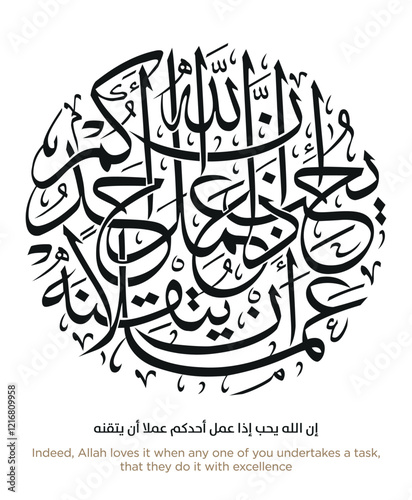 إن الله يحب إذا عمل أحدكم عملا أن يتقنه
إن الله يحب إذا عمل أحدكم عملا أن يتقنه
Indeed, Allah loves it when any one of you undertakes a task,
that they do it with excellence
Adobe Stock | #1216809958